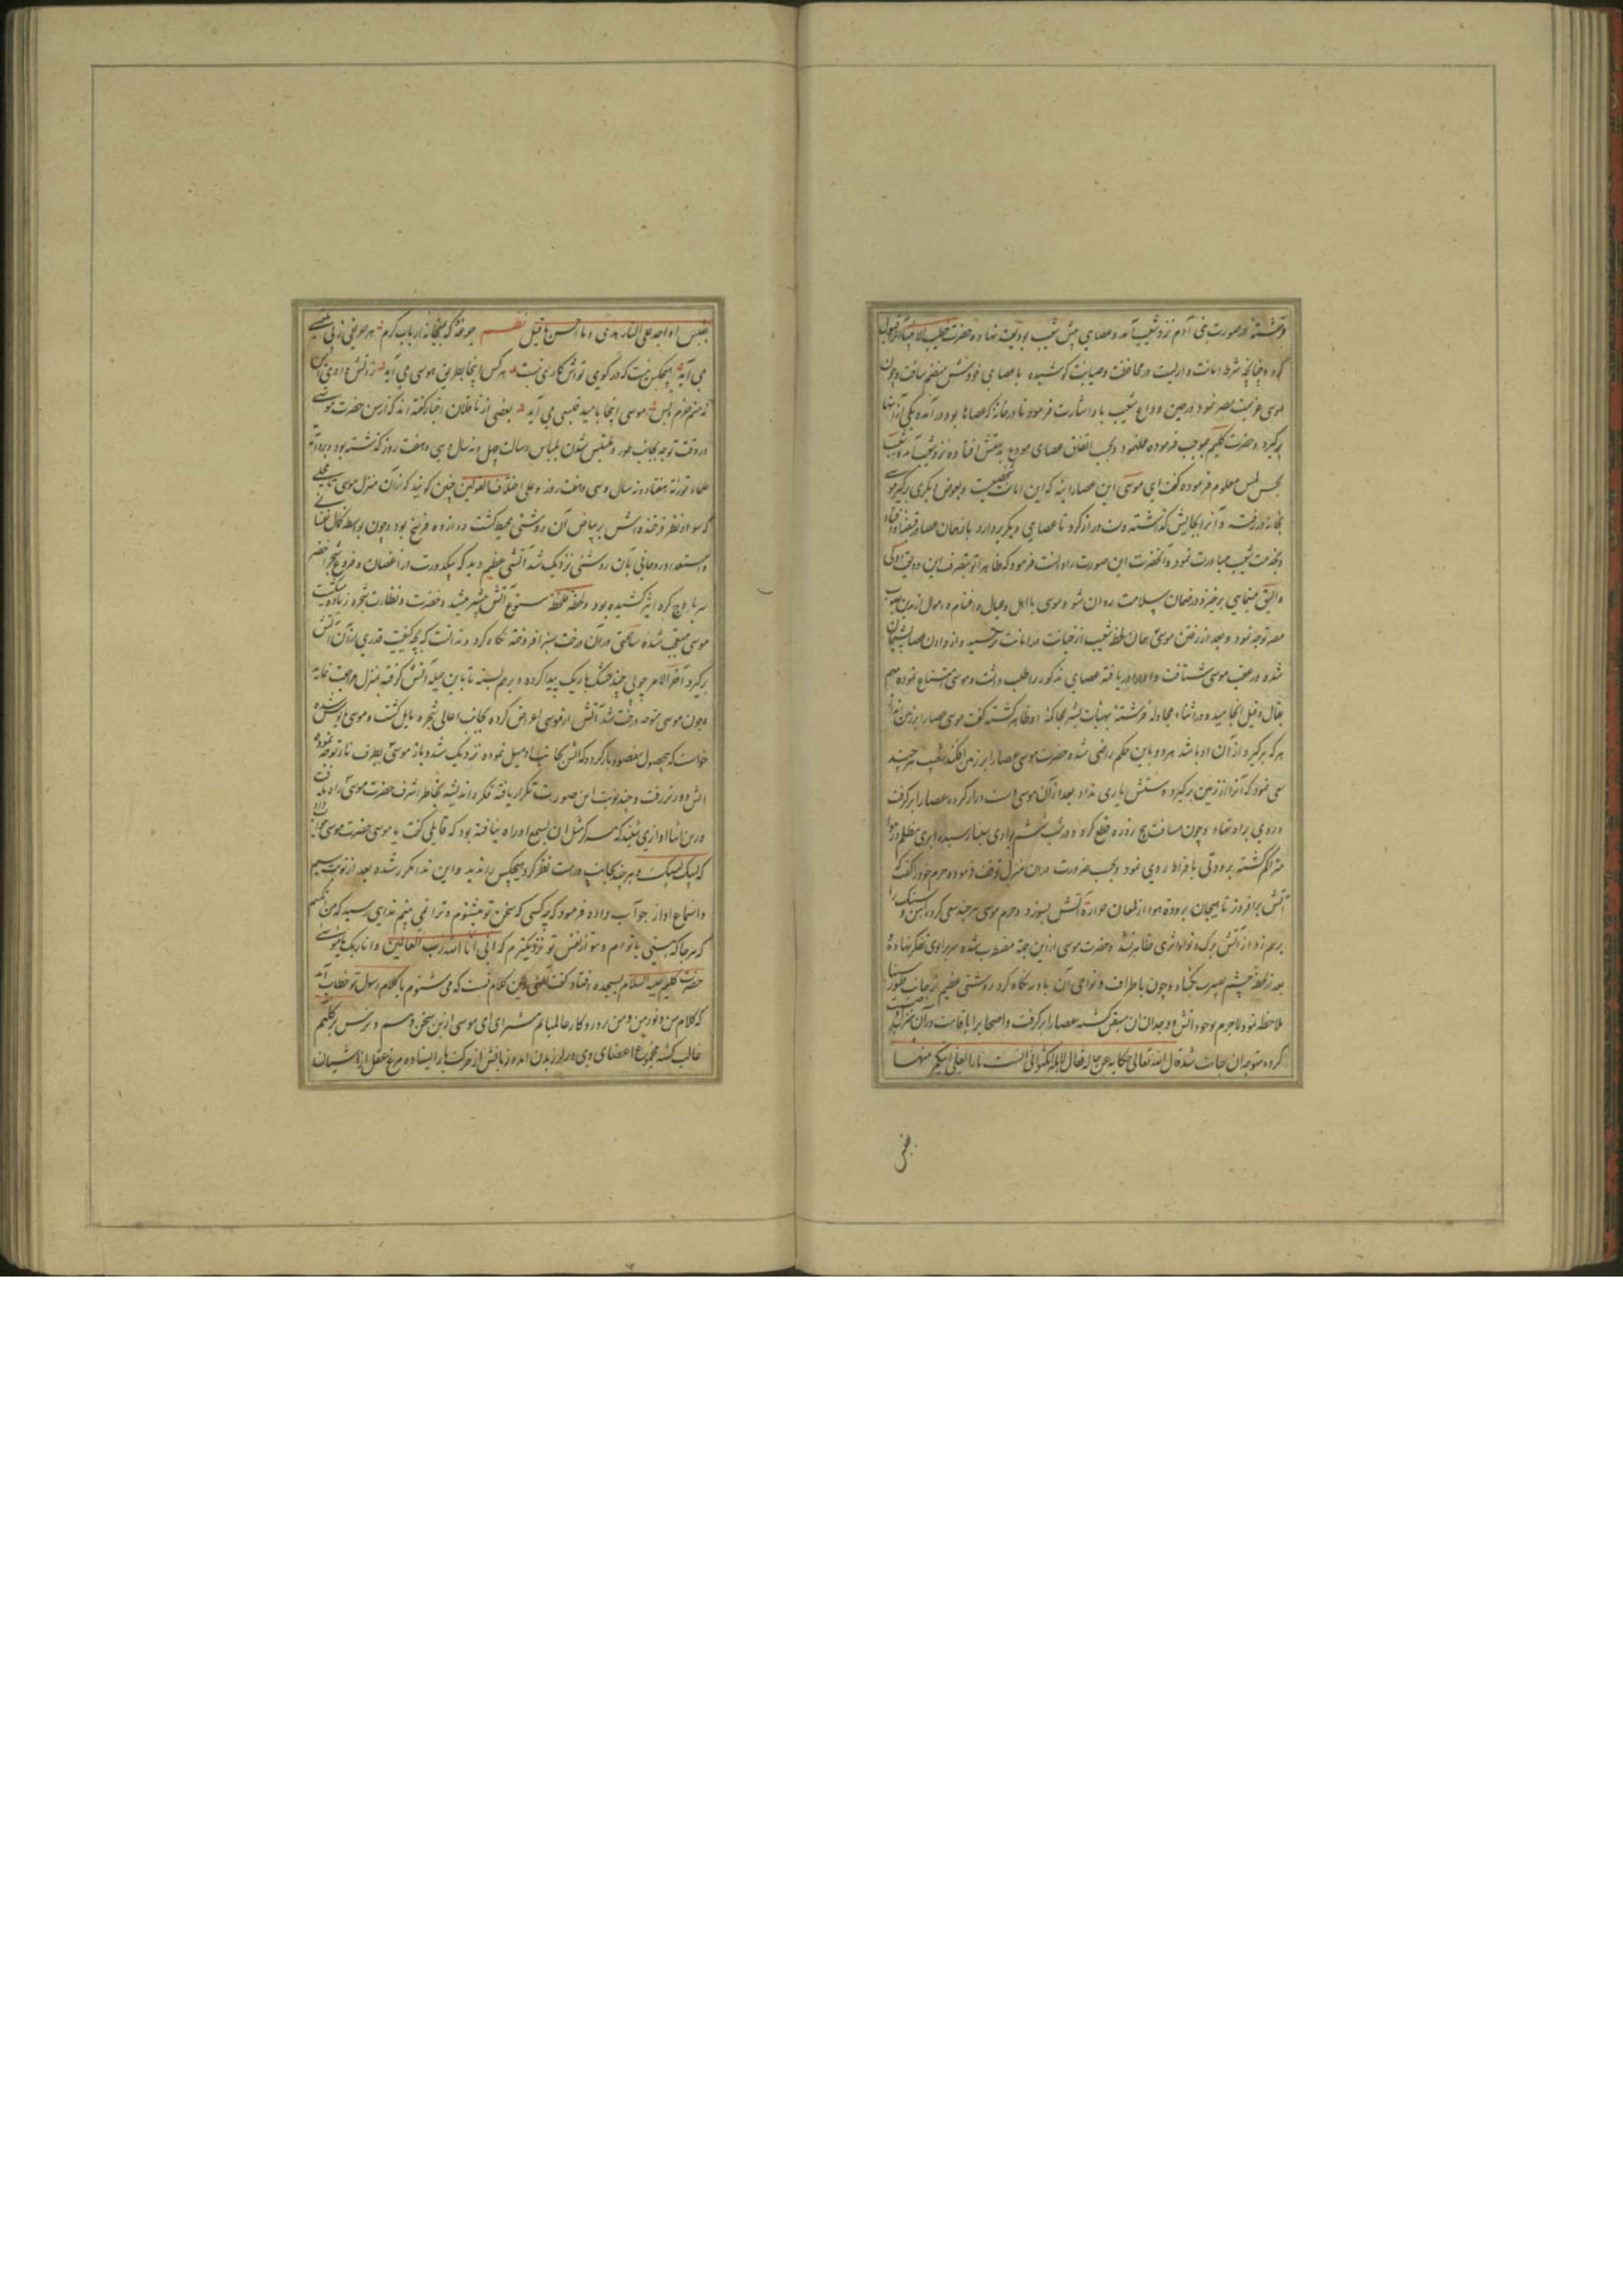 فرشته در صورت بنی آدم نزد شعیب آمد و عصایی پیش شعیب بودیعت نهاد و حضرت خطیب الانبیا آنرا قبول
کرد و چنانچه شرط امانت و دیانت در محافظت و صیانت کوشیده با عصای خودش منضم ساخت و چون
موسی عزیمت مصر نمود در حین وداع شعیب باو اشارت فرمود تا در خانه که عصاها بود در آمده یکی از آنها
برگیرد و حضرت کلیم بموجب فرموده عمل نمود و بحسب اتفاق عصای مودع بدستش افتاده نزد شعیب آمد و شعیب
بحس لمس معلوم فرموده گفت ای موسی این عصا را بنه که این امانت شخصیست و بعوض دیگری برگیر موسی
بخانه در رفت و آنرا بجایش گذاشته دست دراز کرد تا عصایی دیگر بردارد باز همان عصا در قبضه او افتاد
و بخدمت شعیب مبادرت نمود و آنحضرت این صورت را دانست فرمود که ظاهرا تو بتصرف این ودیعت اولی
و الیق مینمایی برخیز و در ضمان سلامت روان شو و موسی با اهل و عیال و اغنام و اموال از مدین بصوب
مصر توجه نمود و بعد از رفتن موسی همان لحظه شعیب از خیانت در امانت ترسید و از دادن عصا پشیمان
شده در عقب موسی شتافت و او را دریافته عصای مذکور را طلب داشت و موسی امتناع نموده مهم
بقال و قیل انجامید و در اثناء مجادله فرشته بهیئات بشر بمحاکمه او ظاهر گشته گفت موسی عصا را بر زمین اندازد
هر که برگیرد از آن او باشد هر دو باین حکم راضی شده حضرت موسی عصا را بر زمین افکند شعیب هر چند
سعی نمود که آنرا از زمین برگیرد دستش یاری نداد بعد از آن موسی دست دراز کرده عصا را برگرفت
و روی براه نهاد و چون مسافت پنج روزه قطع کرد و در شب ششم بوادی رسید ابری مظلم در هوا
متراکم گشته برودتی بافراط روی نمود و بحسب ضرورت در آن منزل توقف فرموده حرم خود را گفت که
آتش برافروز تا هیجان برودة هوا از لمعان حرارة آتش بسوزد و حرم موسی هر چند سعی کرد و آهن و سنگ را
برهم زد از آتش برک و نوا اثری ظاهر نشد و حضرت موسی ازین جهة مضطرب شده سر بزانوی تفکر نهاده
بعد از لحظه چشم بصیرت بگشاد و چون باطراف و نواحی آن بادیه نگاه کرد روشنی عظیم از جانب طور سینا
ملاحظه نمود لاجرم بوجود آتش و وجدان آن متیقن گشته عصا را برگرفت و اصحاب را باقامت در آن منزل وصیت
کرده متوجه آن جانب شد قال الله تعالی حکایة عن حاله فقال لاهله امکثوا انی آنست نارا لعلی آتیکم منها
بقبس
بقبس او اجد علی النار هدی و ما احسن ما قیل نظم
می آید هیچکس نیست که در کوی تواش کاری نیست هر کس آنجا بطریق هوسی می آید ز آتش وادی ایمن
نه منم خرم و بس موسی اینجا بامید قبسی می آید بعضی از ناقلان اخبار گفته اند که از سن حضرت موسی
در وقت توجه بجانب طور و متلبس شدن بلباس رسالت چهل و نه سال سی و هفت روز گذشته بود و بروایة
علماء توریة هفتاد و نه سال و سی و هفت روز و علی اختلاف القولین چنین گویند که از آن منزل موسی تا محلی
که سواد نظر فرخنده اش بر بیاض آن روشنی محیط گشت دوازده فرسخ بود و چون بواسطه کمال نفسانی
و استعداد روحانی بآن روشنی نزدیک شد آتشی عظیم دید که بیکدورت از اغصان و فروع شجر اخضر
سر باوج کره اثیر کشیده بود و لحظه فلحظه سطوع آتش بیشتر میشد و خضرت و نظارت شجره زیاده میگشت
موسی متعجب شده ساعتی در آن درخت سبز افروخته نگاه کرد و ندانست که بچه کیفیت قدری از آن آتش
برگیرد آخر الامر چوبی چند خشک باریک پیدا کرده و برهم بسته تا باین حیله آتش گرفته بمنزل مراجعت نماید
و چون موسی متوجه درخت شد آتش از موسی اعراض کرده بجانب اعالی شجره مایل گشت و موسی مایوس شده
خواست که بی حصول مقصود باز گردد که آتش بجانب او میل نموده نزدیک شد و باز موسی بطرف نار توجه نموده
آتش دورتر رفت و چند نوبت این صورت تکرار یافته تفکر و اندیشه بخاطر اشرف حضرت موسی راه یافت
درین اثنا آوازی شنید که هرگز مثل آن بسمع او راه نیافته بود که قایلی گفت یا موسی حضرت موسی جواب داد
که لبیک لبیک و هر چند بجانب چپ و راست نظر کرد هیچکس را ندید و این ندا مکرر شده بعد از نوبت سیم
و استماع آواز جواب داده فرمود که چه کسی که سخن تو میشنوم و ترا نمی بینم ندایی رسید که من آنکسم
که هر جا که هستی با توام و بتو از نفس تو نزدیکترم که انی انا الله رب العالمین و انا ربک یا موسی
حضرت کلیم علیه السلام بسجده افتاد و گفت الهی این کلام تست که می شنوم یا کلام رسول تو خطاب آمد
که کلام من و نور من و من پروردگار عالمیانم
غالب گشته مجموع اعضای وی در لرزیدن آمده زبانش از حرکت باز ایستاده مرغ عقل از آشیان